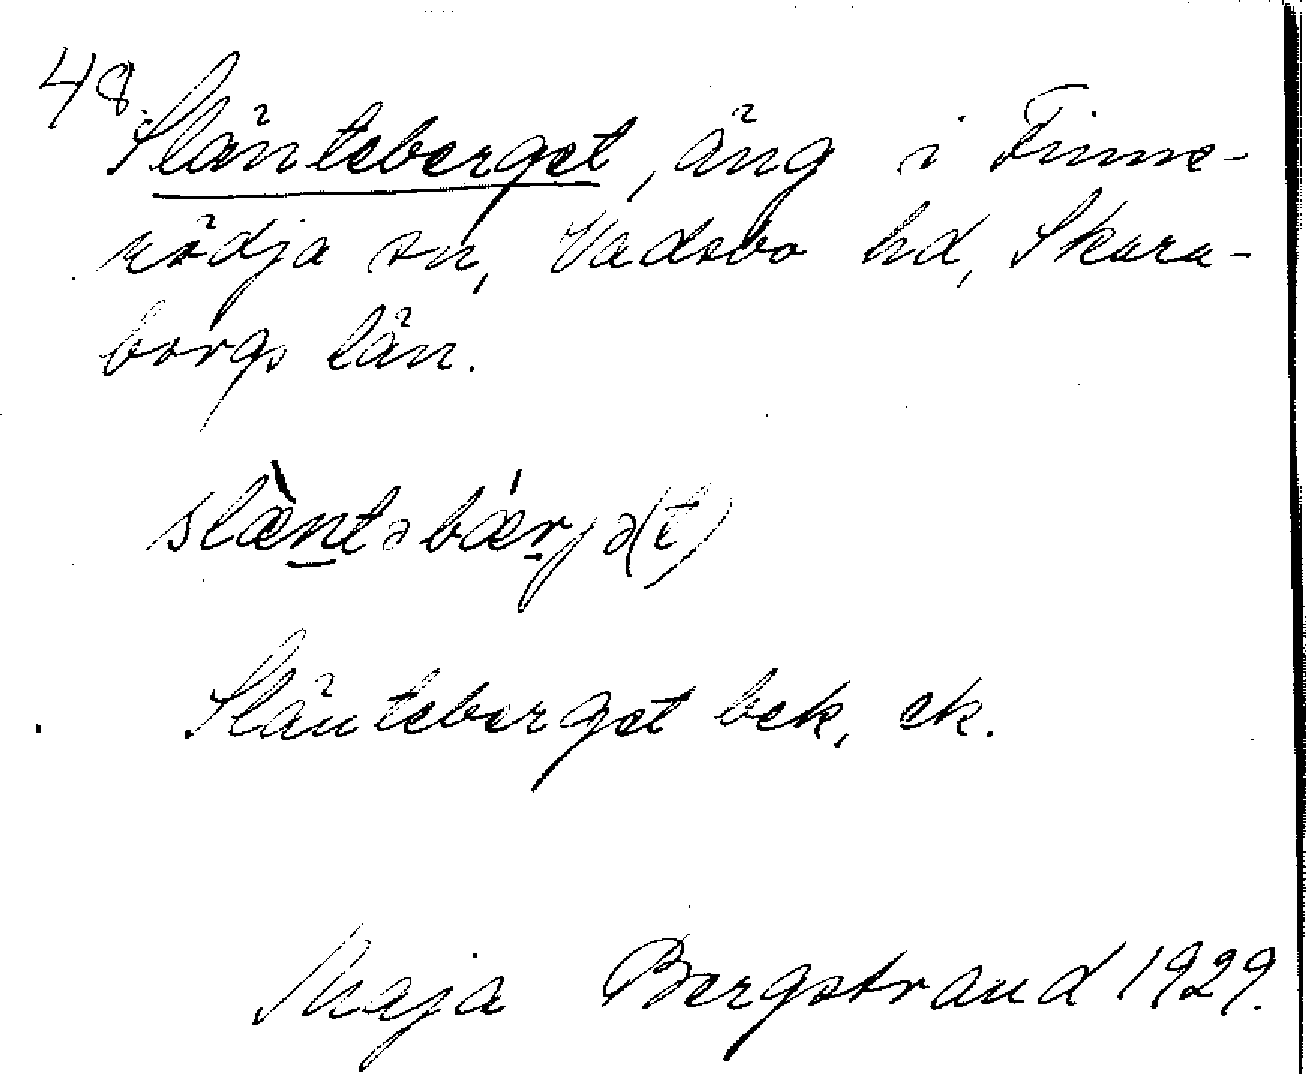 48.
Slänteberget, äng i Finne-
rödja sn, Vadsbo hd, Skara-
borgs län.
slæ̀ntəbǽrjə(t)
Slänteberget bek, ek.
Maja Bergstrand 1929.